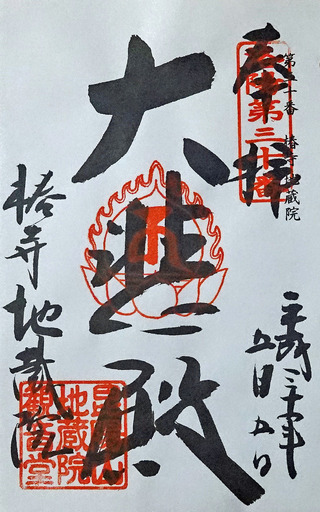 奉拝
洛陽第三十番
第三十番 椿寺地蔵院
平成三十年
五月五日
大悲殿
椿寺地蔵院
昆陽山
地蔵院
観音堂